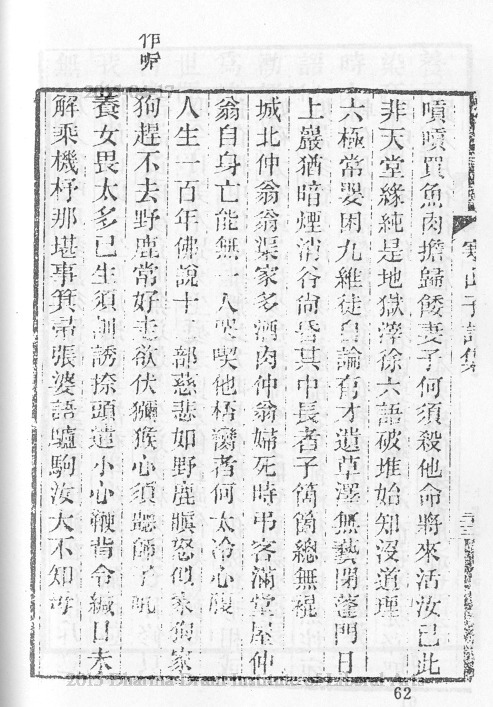 寒山子詩集
嘖嘖買魚肉擔歸餧妻子何須殺他命將來活汝己此
非天堂緣純是地獄滓徐六語破堆始知沒道理
六極常嬰困九維徒自論有才遺草澤無藝閉蓬門日
上巖猶暗煙消谷尚昏其中長者子箇箇總無裩
城北仲翁翁渠家多酒肉仲翁婦死時弔客滿堂屋仲
翁自身亡能無一人哭喫他桮臠者何太冷心腹
人生一百年佛說十二部慈悲如野鹿瞋怒似家狗家
狗趕不去野鹿常好走欲伏獼猴心須聽師子吼
養女畏太多已生須訓誘捺頭遣小心鞭背令緘口未
解乘機杼那堪事箕帚張婆語驢駒汝大不知母
62